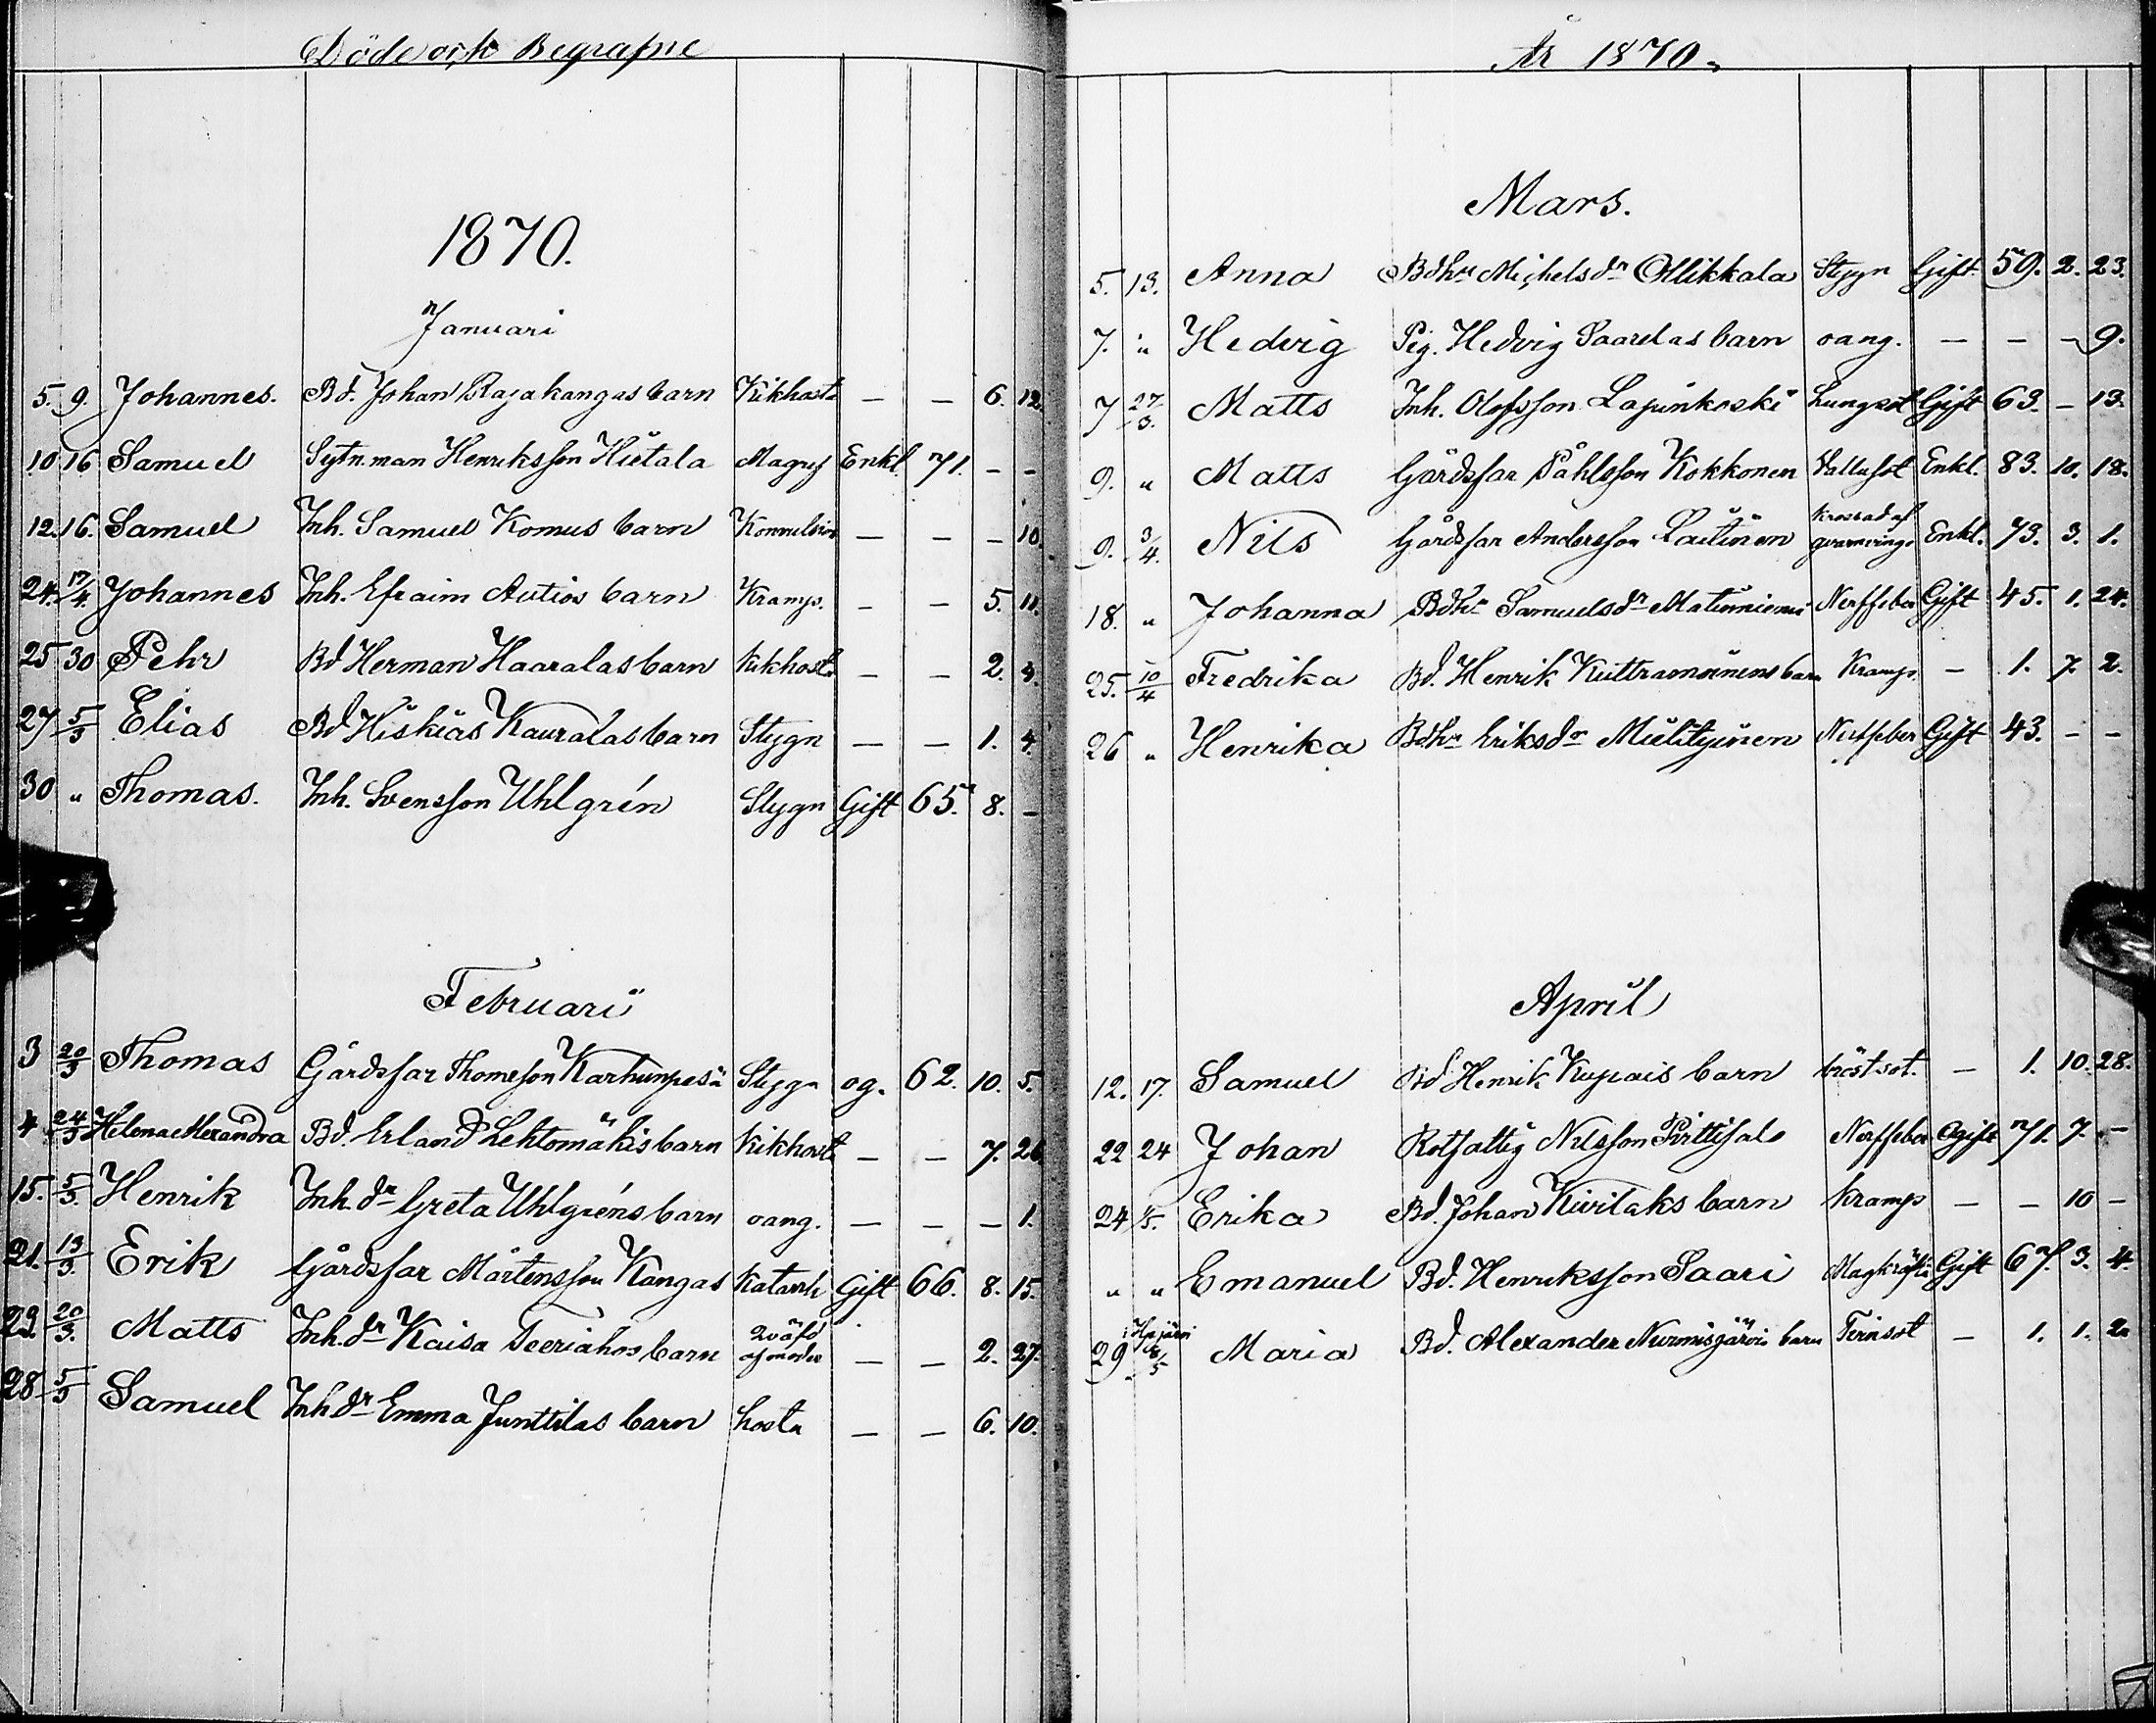 Döde och Begrafne
1870.
Januari
5. 9. Johannes. Bd. Johan Rajakangas barn Kikhosta — — 6. 12.
10 16 Samuel Sytn.man Henriksson Hietala Magref Enkl. 71. - -
12. 16. Samuel Inh. Samuel Komus barn Konvulsion — — — 10.
24. 17/4. Johannes Inh. Efraim Autios barn Kramp. — — 5. 11.
25 30 Pehr Bd Herman Haaralas barn Kikhosta — — 2. 3.
27 5/3 Elias Bd Hiskias Kauralas barn Stygn — — 1. 4.
30 " Thomas. Inh. Svensson Uhlgrén Stygn Gift 65. 8. -
Februari
3 20/3 Thomas Gårdsfar Thomeson Karhunpesä Stygn og. 62. 10. 5.
4 24/3 Helena Alexandra Bd. Erland Lehtomäkis barn Kikhosta — — 7. 26
15. 5/3. Henrik Inh. dr Greta Uhlgréns barn oang. — — — 1.
21. 13/3. Erik Gårdsfar Mårtensson Kangas Katarrh Gift 66. 8. 15.
23. 20/3. Matts Inh. dr Kaisa Teeriahos barn qväfd af moder — — 2. 27.
28 5/3 Samuel Inh dr Emma Junttilas barn hosta — — 6. 10.
År 1870.
Mars.
5. 13. Anna Bdhu Michelsdr Ollikkala Stygn Gift. 59. 2. 23.
7. " Hedvig Pig. Hedvig Saarelas barn oang. — — — 9.
7 27/3. Matts Inh. Olofsson Lajunkoski Lungsot Gift 63. — 13.
9. " Matts Gårdsfar Påhlsson Kokkonen Vattusot Enkl. 83. 10. 18.
9. 3/4. Nils Gårdsfar Andersson Laitinen krossad af qvarnvinge Enkl. 73. 3. 1.
18. " Johanna Bdhu Samuelsdr Matinniemi Nerffeber Gift 45. 1. 24.
25. 10/4 Fredrika Bd. Henrik barn Kramp. — 1. 7. 2.
26 " Henrika Bdhu Eriksdr Mielityinen Nerffeber Gift 43. - -
April
12. 17. Samuel Bd Henrik barn bröstsot. — 1. 10. 28.
22 24 Johan Rotfattig Nilsson Pirttisalo Nerffeber Ogift 71. 7. -
24 1/5. Erika Bd. Johan Kivilaks barn Kramp — — 10 -
" " Emanuel Bd. Henriksson Saari Magkräfta Gift 67. 3. 4.
29 8/5 Maria Bd. Alexander Nurmisjärvis barn Tvinsot — 1. 1. 2.